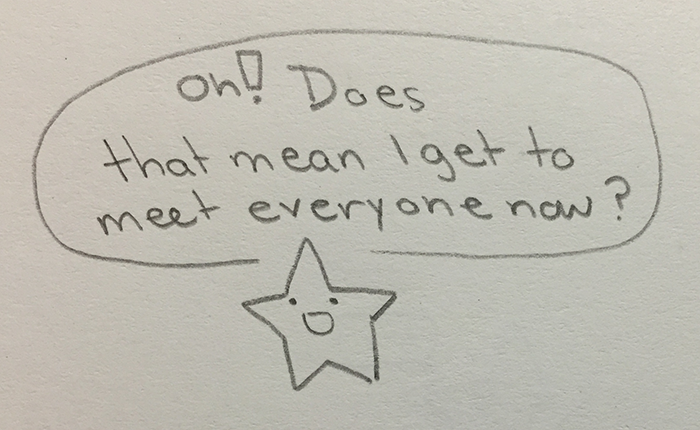 Oh! Does
that mean I get to
meet everyone now?